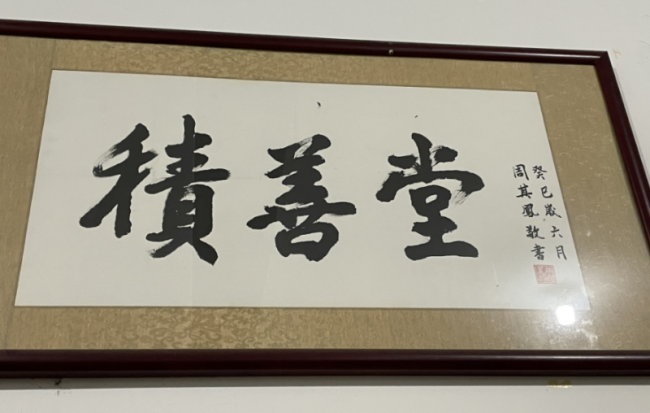 積善堂
癸巳歲六月
周其鳳敬書